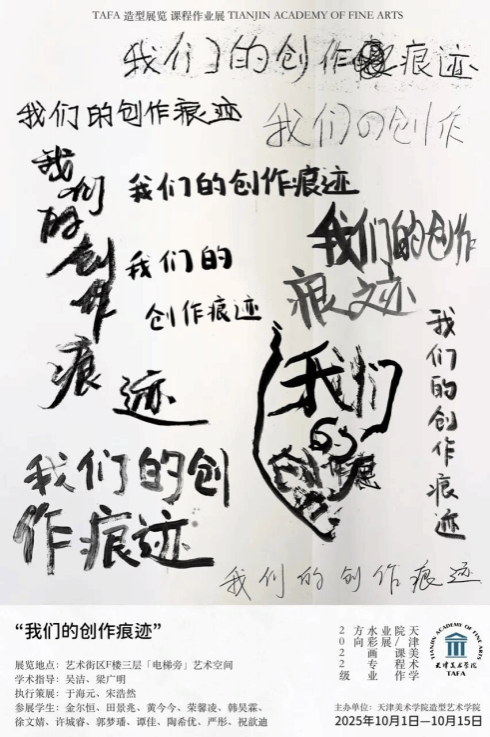 TAFA 造型展览 课程作业展 TIANJIN ACADEMY OF FINE ARTS
我们的创作痕迹
我们的创作痕迹
我们的创作
我们的创作痕迹
我们的创作痕迹
我们的创作
痕迹
我们的
创作痕迹
我们的创作痕迹
我们
的
创作痕迹
我们的创
作痕迹
我们的创作痕迹
“我们的创作痕迹”
展览地点：艺术街区F楼三层「电梯旁」艺术空间
学术指导：吴洁、梁广明
执行策展：于海元、宋浩然
参展学生：金尔恒、田景兆、黄今今、荣馨凌、韩昊霖、
徐文婧、许城睿、郭梦璠、谭佳、陶希优、严彤、祝歆迪
天津美术学
院/课程作
业展
水彩画专业
方向
2022级
TIANJIN ACADEMY OF FINE ARTS
天津美术学院
TAFA
主办单位：天津美术学院造型艺术学院
2025年10月1日—10月15日